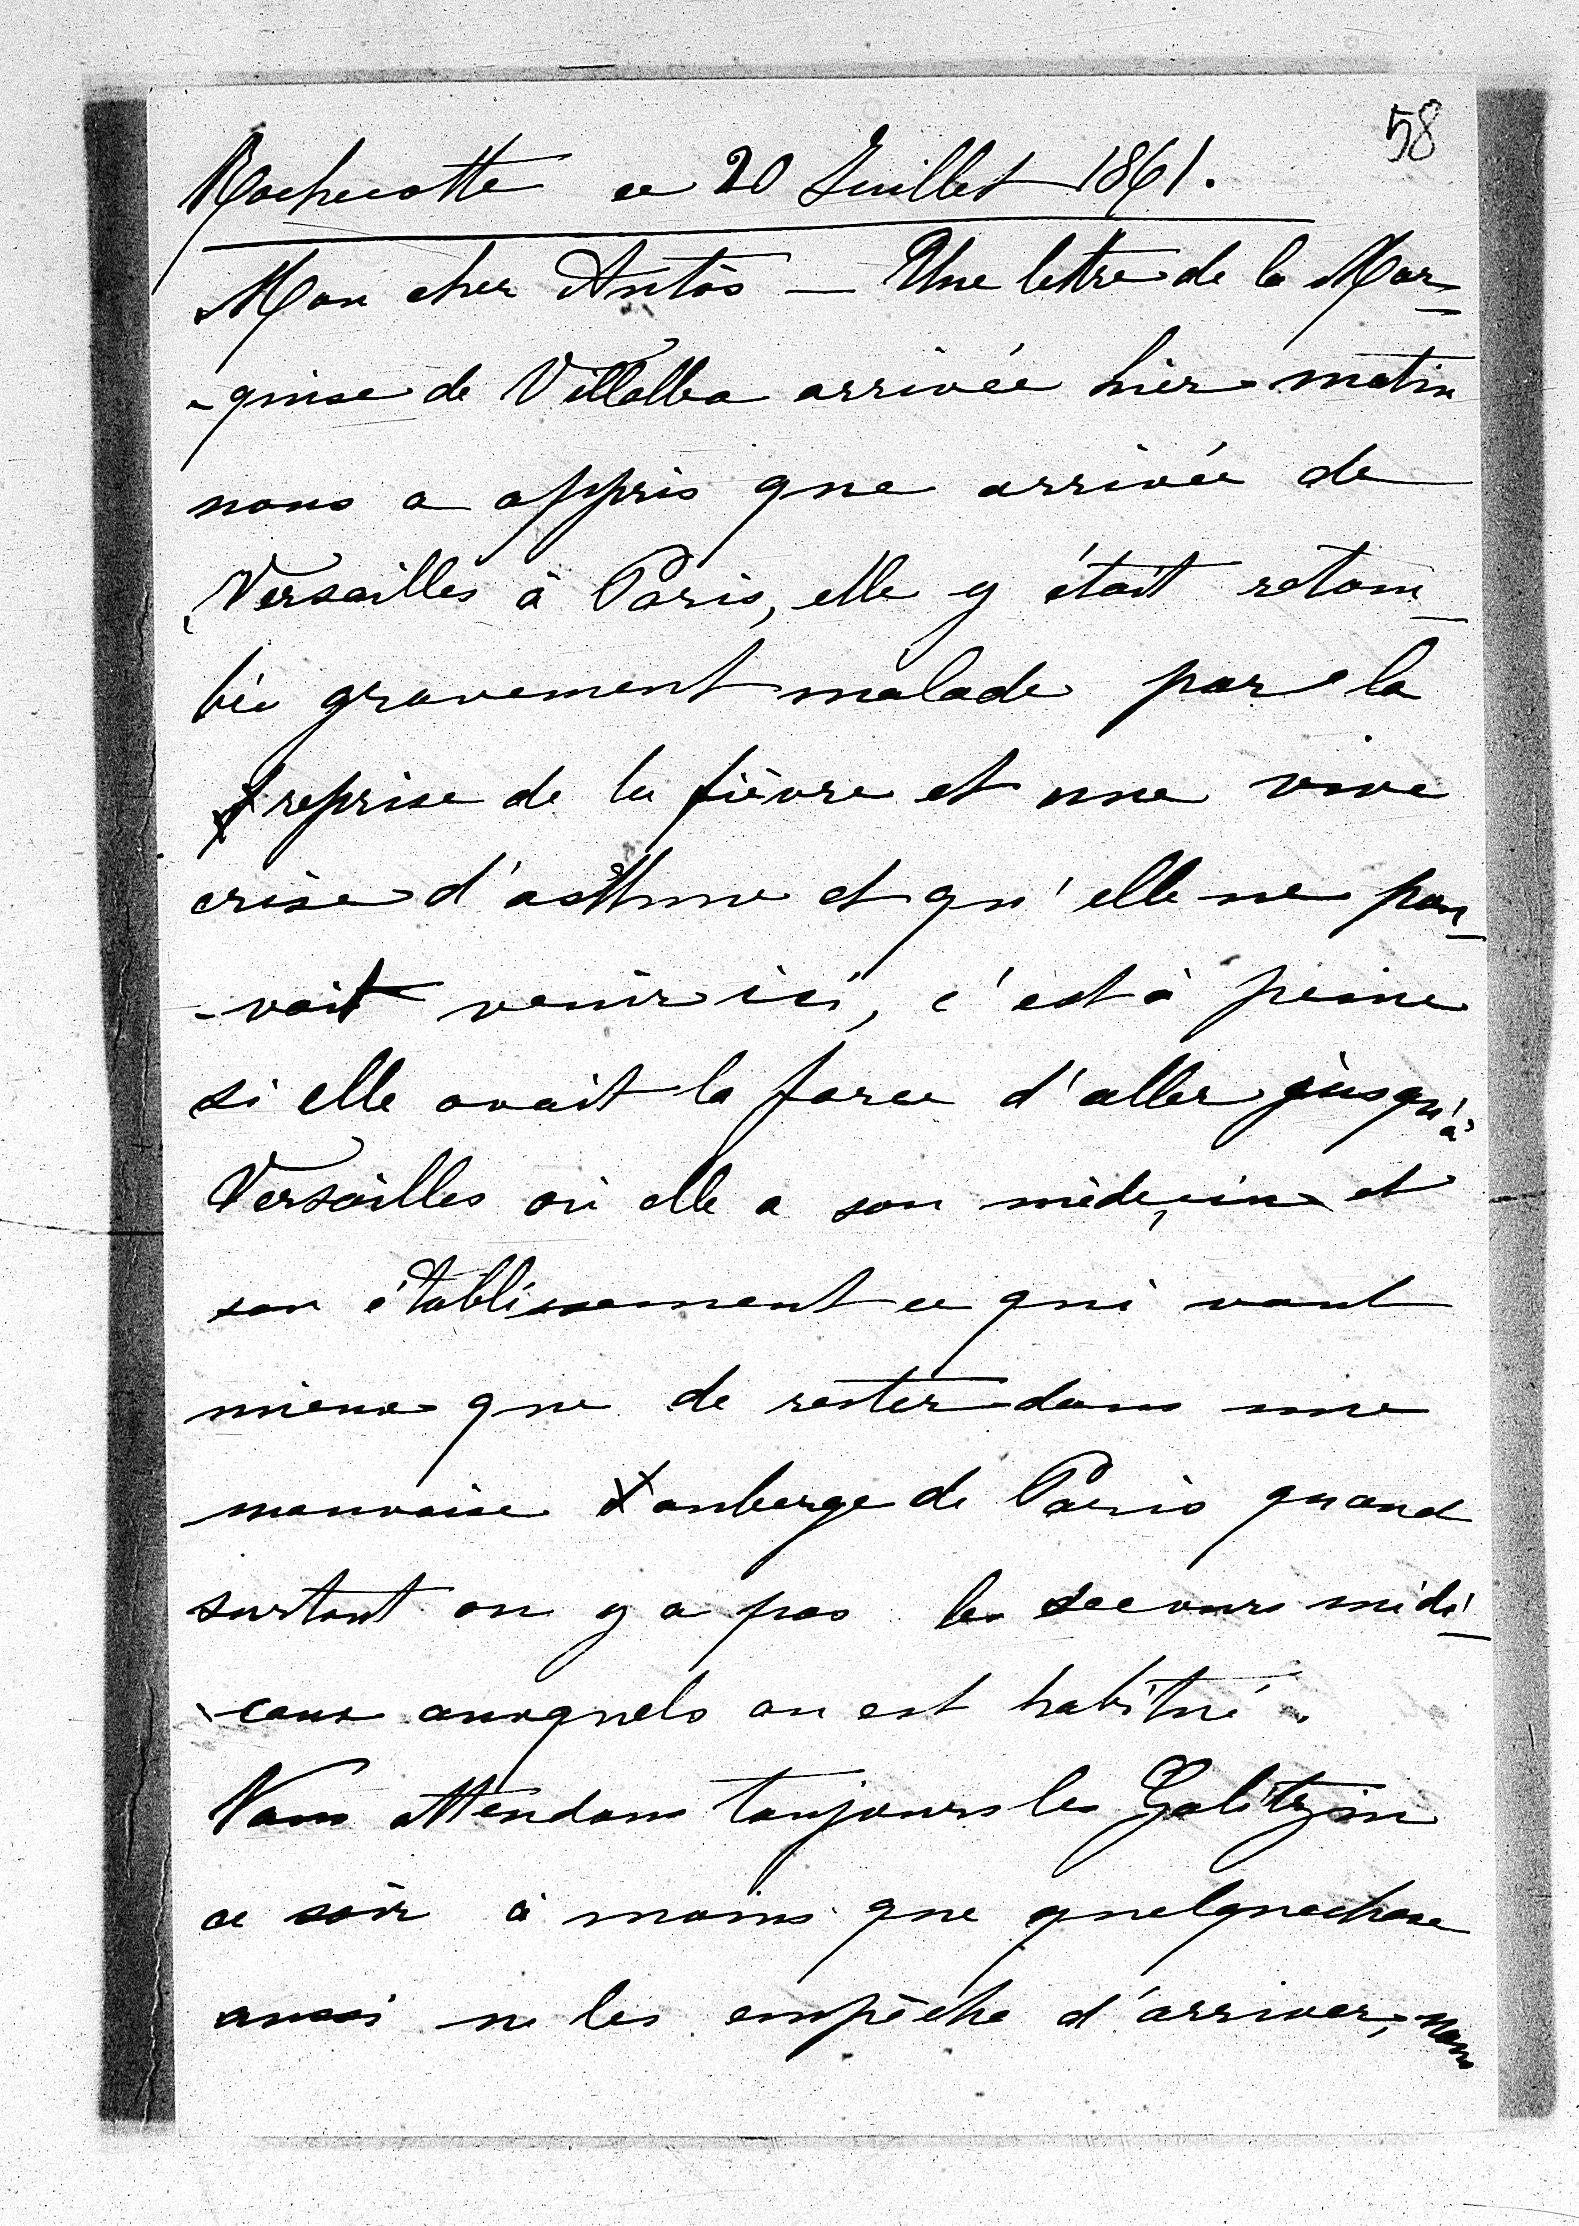 58
Rochecotte ce 20 Juillet 1861.
Mon cher Antos — Une lettre de la Mar-
-quise de Villalba arrivée hier matin
nous a appris que arrivée de
Versailles à Paris, elle y était retom-
bée gravement malade par la
reprise de la fièvre et une vive
crise d'asthme et qu'elle ne pou-
-vait venir ici, c'est à peine
si elle avait la force d'aller jusqu'à
Versailles où elle a son médecin et
son établissement ce qui vaut
mieux que de rester dans une
mauvaise auberge de Paris quand
surtout on y a pas les secours médi-
-caux auxquels on est habitué.
Nous attendons toujours les Galitzin
ce soir à moins que quelquechose
aussi ne les empêche d'arriver, nous